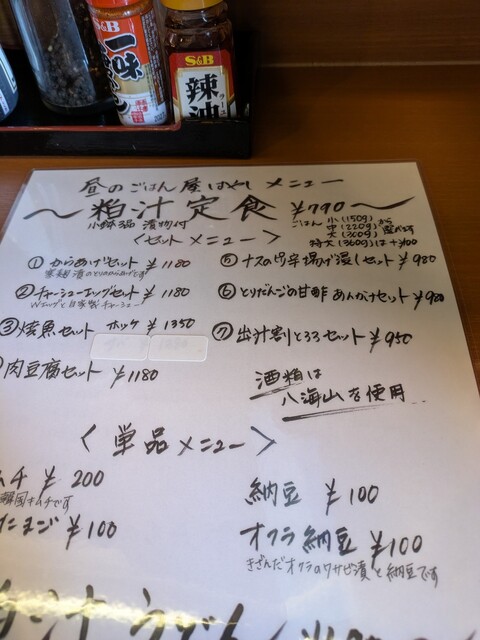 S&B
一味
S&B
辣油
昼のごはん屋はやし メニュー
〜粕汁定食 ¥790〜
小鉢3品 漬物付
ごはん 小(150g) から
中(220g) 選べます
大(300g)
特大(360g)は+¥100
〈セットメニュー〉
①からあげセット ¥1180
⑤ナスのピリ辛揚げ浸しセット ¥980
②チャーシューエッグセット ¥1180
Wエッグと自家製チャーシュー
⑥とりだんごの甘酢あんかけセット ¥980
③焼魚セット ホッケ ¥1350
⑦出汁割とろろセット ¥950
肉豆腐セット ¥1180
酒粕は
八海山を使用
〈単品メニュー〉
ムチ ¥200
韓国キムチです
納豆 ¥100
たまご ¥100
オクラ納豆 ¥100
きざんだオクラのワサビ漬と納豆です
汁うどん